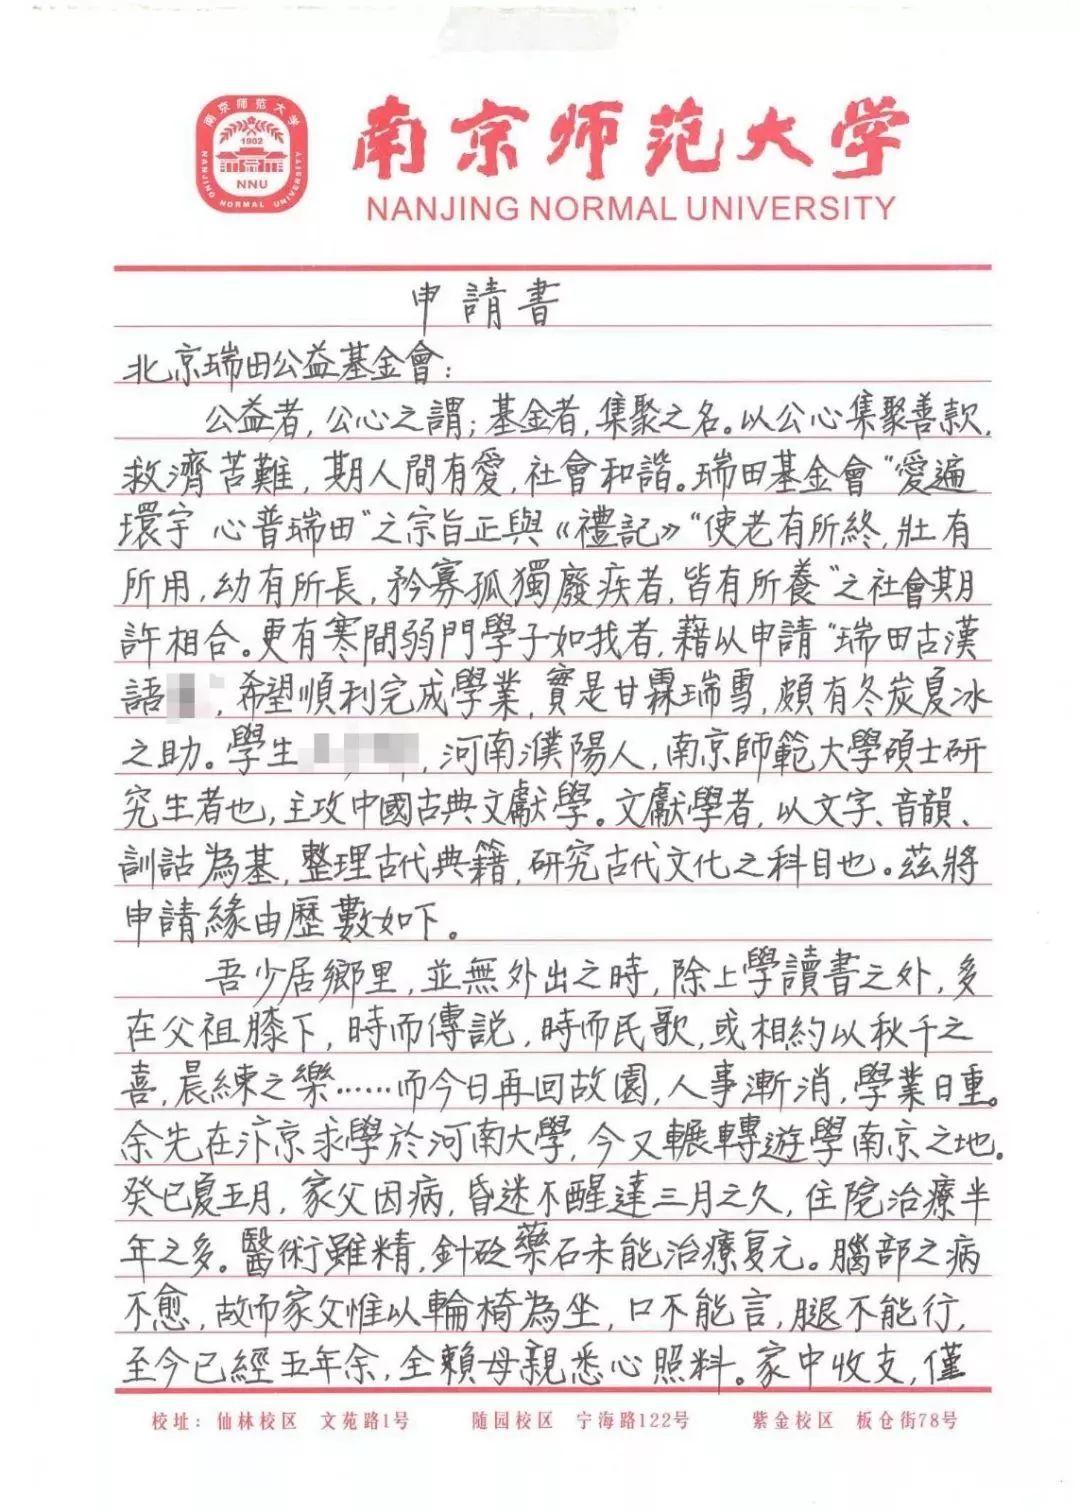 南京师范大学
1902
NNU
NANJING NORMAL UNIVERSITY
南京师范大学
NANJING NORMAL UNIVERSITY
申請書
北京瑞田公益基金會：
公益者，公心之謂；基金者，集聚之名。以公心集聚善款，
救濟苦難，期人間有愛，社會和諧。瑞田基金會“愛遍
環宇 心普瑞田”之宗旨正與《禮記》“使老有所終，壯有
所用，幼有所長，矜寡孤獨廢疾者，皆有所養”之社會期
許相合。更有寒間弱門學子如我者，藉以申請“瑞田古漢
語 ，希望順利完成學業，實是甘霖瑞雪，頗有冬炭夏冰
之助。學生 ，河南濮陽人，南京師範大學碩士研
究生者也，主攻中國古典文獻學。文獻學者，以文字、音韻、
訓詁為基，整理古代典籍，研究古代文化之科目也。茲將
申請緣由歷數如下。
吾少居鄉里，並無外出之時，除上學讀書之外，多
在父祖膝下，時而傳説，時而民歌，或相約以秋千之
喜，晨練之樂……而今日再回故園，人事漸消，學業日重。
余先在汴京求學於河南大學，今又輾轉遊學南京之地。
癸巳夏五月，家父因病，昏迷不醒達三月之久，住院治療半
年之多。醫術雖精，針砭藥石未能治療复元。腦部之病
不愈，故而家父惟以輪椅為坐，口不能言，腿不能行，
至今已經五年余，全賴母親悉心照料。家中收支，僅
校址：仙林校区 文苑路1号 随园校区 宁海路122号 紫金校区 板仓街78号